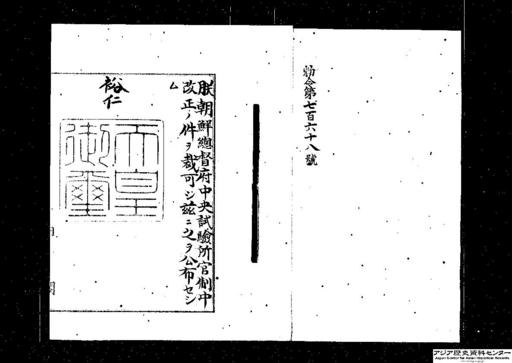 勅令第七百六十八號
朕朝鮮總督府中央試驗所官制中
改正ノ件ヲ裁可シ茲ニ之ヲ公布セシ
ム
裕仁
天皇
御璽
アジア歴史資料センター
Japan Center for Asian Historical Records